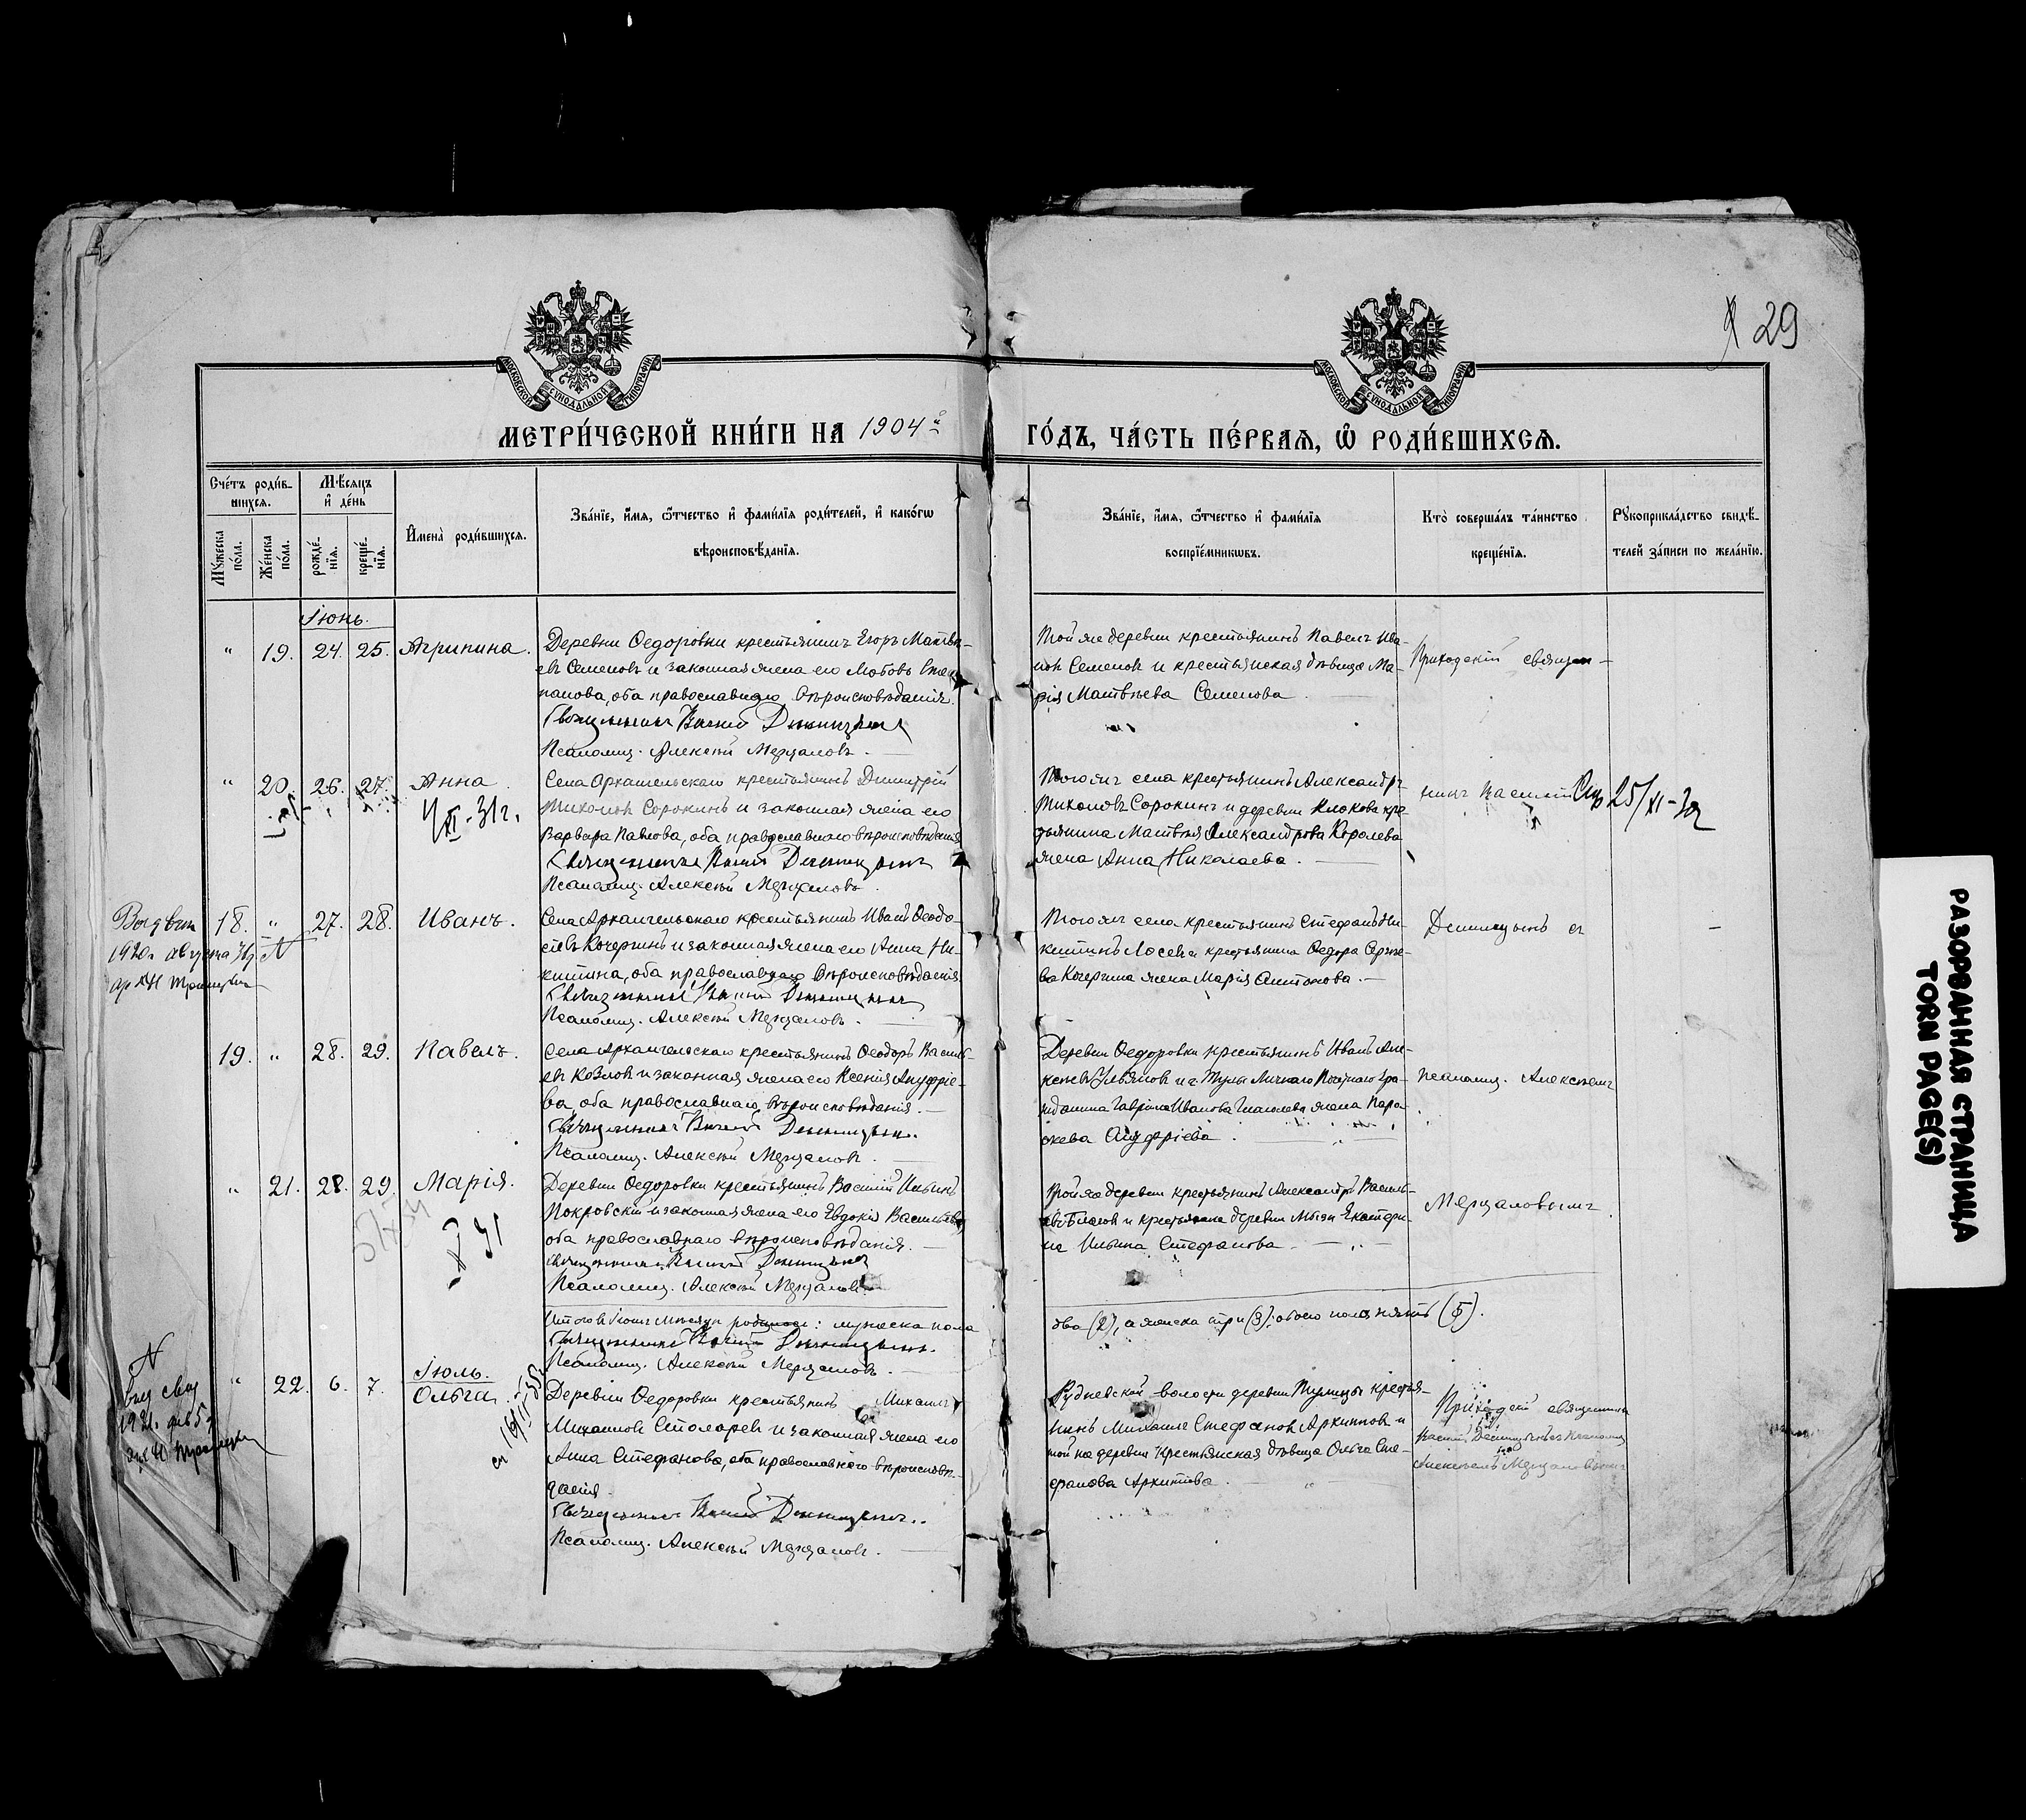 29
МОСКОВСКОЙ СѴНОДАЛЬНОЙ ТИПОГРАФІИ
МОСКОВСКОЙ СѴНОДАЛЬНОЙ ТИПОГРАФІИ
МЕТРИ́ЧЕСКОЙ КНИ́ГИ НА 1904й
ГО́ДЪ, ЧА́СТЬ ПЕ́РВАѦ, Ѿ РОДИ́ВШИХСѦ.
Сче́тъ роди́в-
шихсѧ.
Мꙋ́жеска по́ла.
Же́нска по́ла.
Мѣ́сяцъ и҆ де́нь
рожде́-нїѧ.
креще́-нїѧ.
И҆мена̀ роди́вшихсѧ.
Зва́нїе, и҆́мѧ, ѻ҆́тчество и҆ фами́лїѧ роди́телей, и҆ како́гѡ
вѣроисповѣ́данїѧ.
Зва́нїе, и҆́мѧ, ѻ҆́тчество и҆ фами́лїѧ
воспрїе́мникѡвъ.
Кто̀ соверша́лъ та́инство
креще́нїѧ.
Рꙋкоприкла́дство свидѣ́-
телей за́писи по жела́нїю.
Іюнь.
" 19. 24. 25. Агрипина.
Деревни Ѳедоровки крестьянинъ Егоръ Матвѣ-
евъ Семеновъ и законная жена его Любовь Сте-
панова, оба православнаго вѣроисповѣданія.
Священникъ Василій Десницынъ
Псаломщ. Алексѣй Мерцаловъ.
Той же деревни крестьянинъ Павелъ Ива-
новъ Семеновъ и крестьянская дѣвица Ма-
рія Матвѣева Семенова
Приходскій священ-
" 20. 26. 27. Анна
4/XI-31г.
Села Архангельскаго крестьянинъ Димитрій
Тихоновъ Сорокинъ и законная жена его
Варвара Павлова, оба православнаго вѣроисповѣданія
Священникъ Василій Десницынъ
Псаломщ. Алексѣй Мерцаловъ.
Того же села крестьянинъ Александръ
Тихоновъ Сорокинъ и деревни Клокова кре-
стьянина Матвѣя Александрова Королева
жена Анна Николаева.
никъ Василій
25/XI-32
18. " 27. 28. Иванъ.
1920г августа
Села Архангельскаго крестьянинъ Иванъ Ѳеодо-
евъ Кочергинъ и законная жена его Анна Ни-
китина, оба православнаго вѣроисповѣданія
Священникъ Василій Десницынъ
Псаломщ. Алексѣй Мерцаловъ.
Того же села крестьянинъ Стефанъ Ни-
китинъ Лосевъ и крестьянина Ѳедора Сергѣе-
ва Кочергина жена Марія Антонова.
Десницынъ съ
19. " 28. 29. Павелъ.
Села Архангельскаго крестьянинъ Ѳеодоръ Василь-
евъ Козловъ и законная жена его Ксенія Ануфріе-
ва, оба православнаго вѣроисповѣданія.
Священникъ Василій Десницынъ.
Псаломщ. Алексѣй Мерцаловъ.
Деревни Ѳедоровки крестьянинъ Иванъ Але-
ксѣевъ Ульяновъ и г. Тулы Личнаго Почетнаго Гра-
жданина Гавріила Иванова жена Пара-
скева Ануфріева.
псаломщ. Алексѣемъ
" 21. 28. 29. Марія.
Деревни Ѳедоровки крестьянинъ Василій Ильинъ
Покровскій и законная жена его Евдокія Васильева,
оба православнаго вѣроисповѣданія.
Священникъ Василій Десницынъ
Псаломщ. Алексѣй Мерцаловъ.
Той же деревни крестьянинъ Александръ Василь-
евъ Благовъ и крестьянка деревни Мызы Екатери-
на Ильина Стефанова.
Мерцаловымъ
Итого въ Іюнѣ мѣсяцѣ родилось: мужеска пола
два (2), а женска три (3); обоего пола пять (5).
Священникъ Василій Десницынъ.
Псаломщ. Алексѣй Мерцаловъ.
Іюль.
" 22. 6. 7. Ольга.
Деревни Ѳедоровки крестьянинъ Михаилъ
Михаиловъ Столяревъ и законная жена его
Анна Стефанова, оба православнаго вѣроисповѣ-
данія.
Священникъ Василій Десницынъ.
Псаломщ. Алексѣй Мерцаловъ.
Рудневской волости деревни Тулицы крестья-
нинъ Михаилъ Стефановъ Архиповъ и
той же деревни крестьянская дѣвица Ольга Сте-
фанова Архипова.
Приходскій священникъ
Василій Десницынъ съ псаломщ
Алексѣемъ Мерцаловымъ
РАЗОРВАННАЯ СТРАНИЦА
TORN PAGE(S)